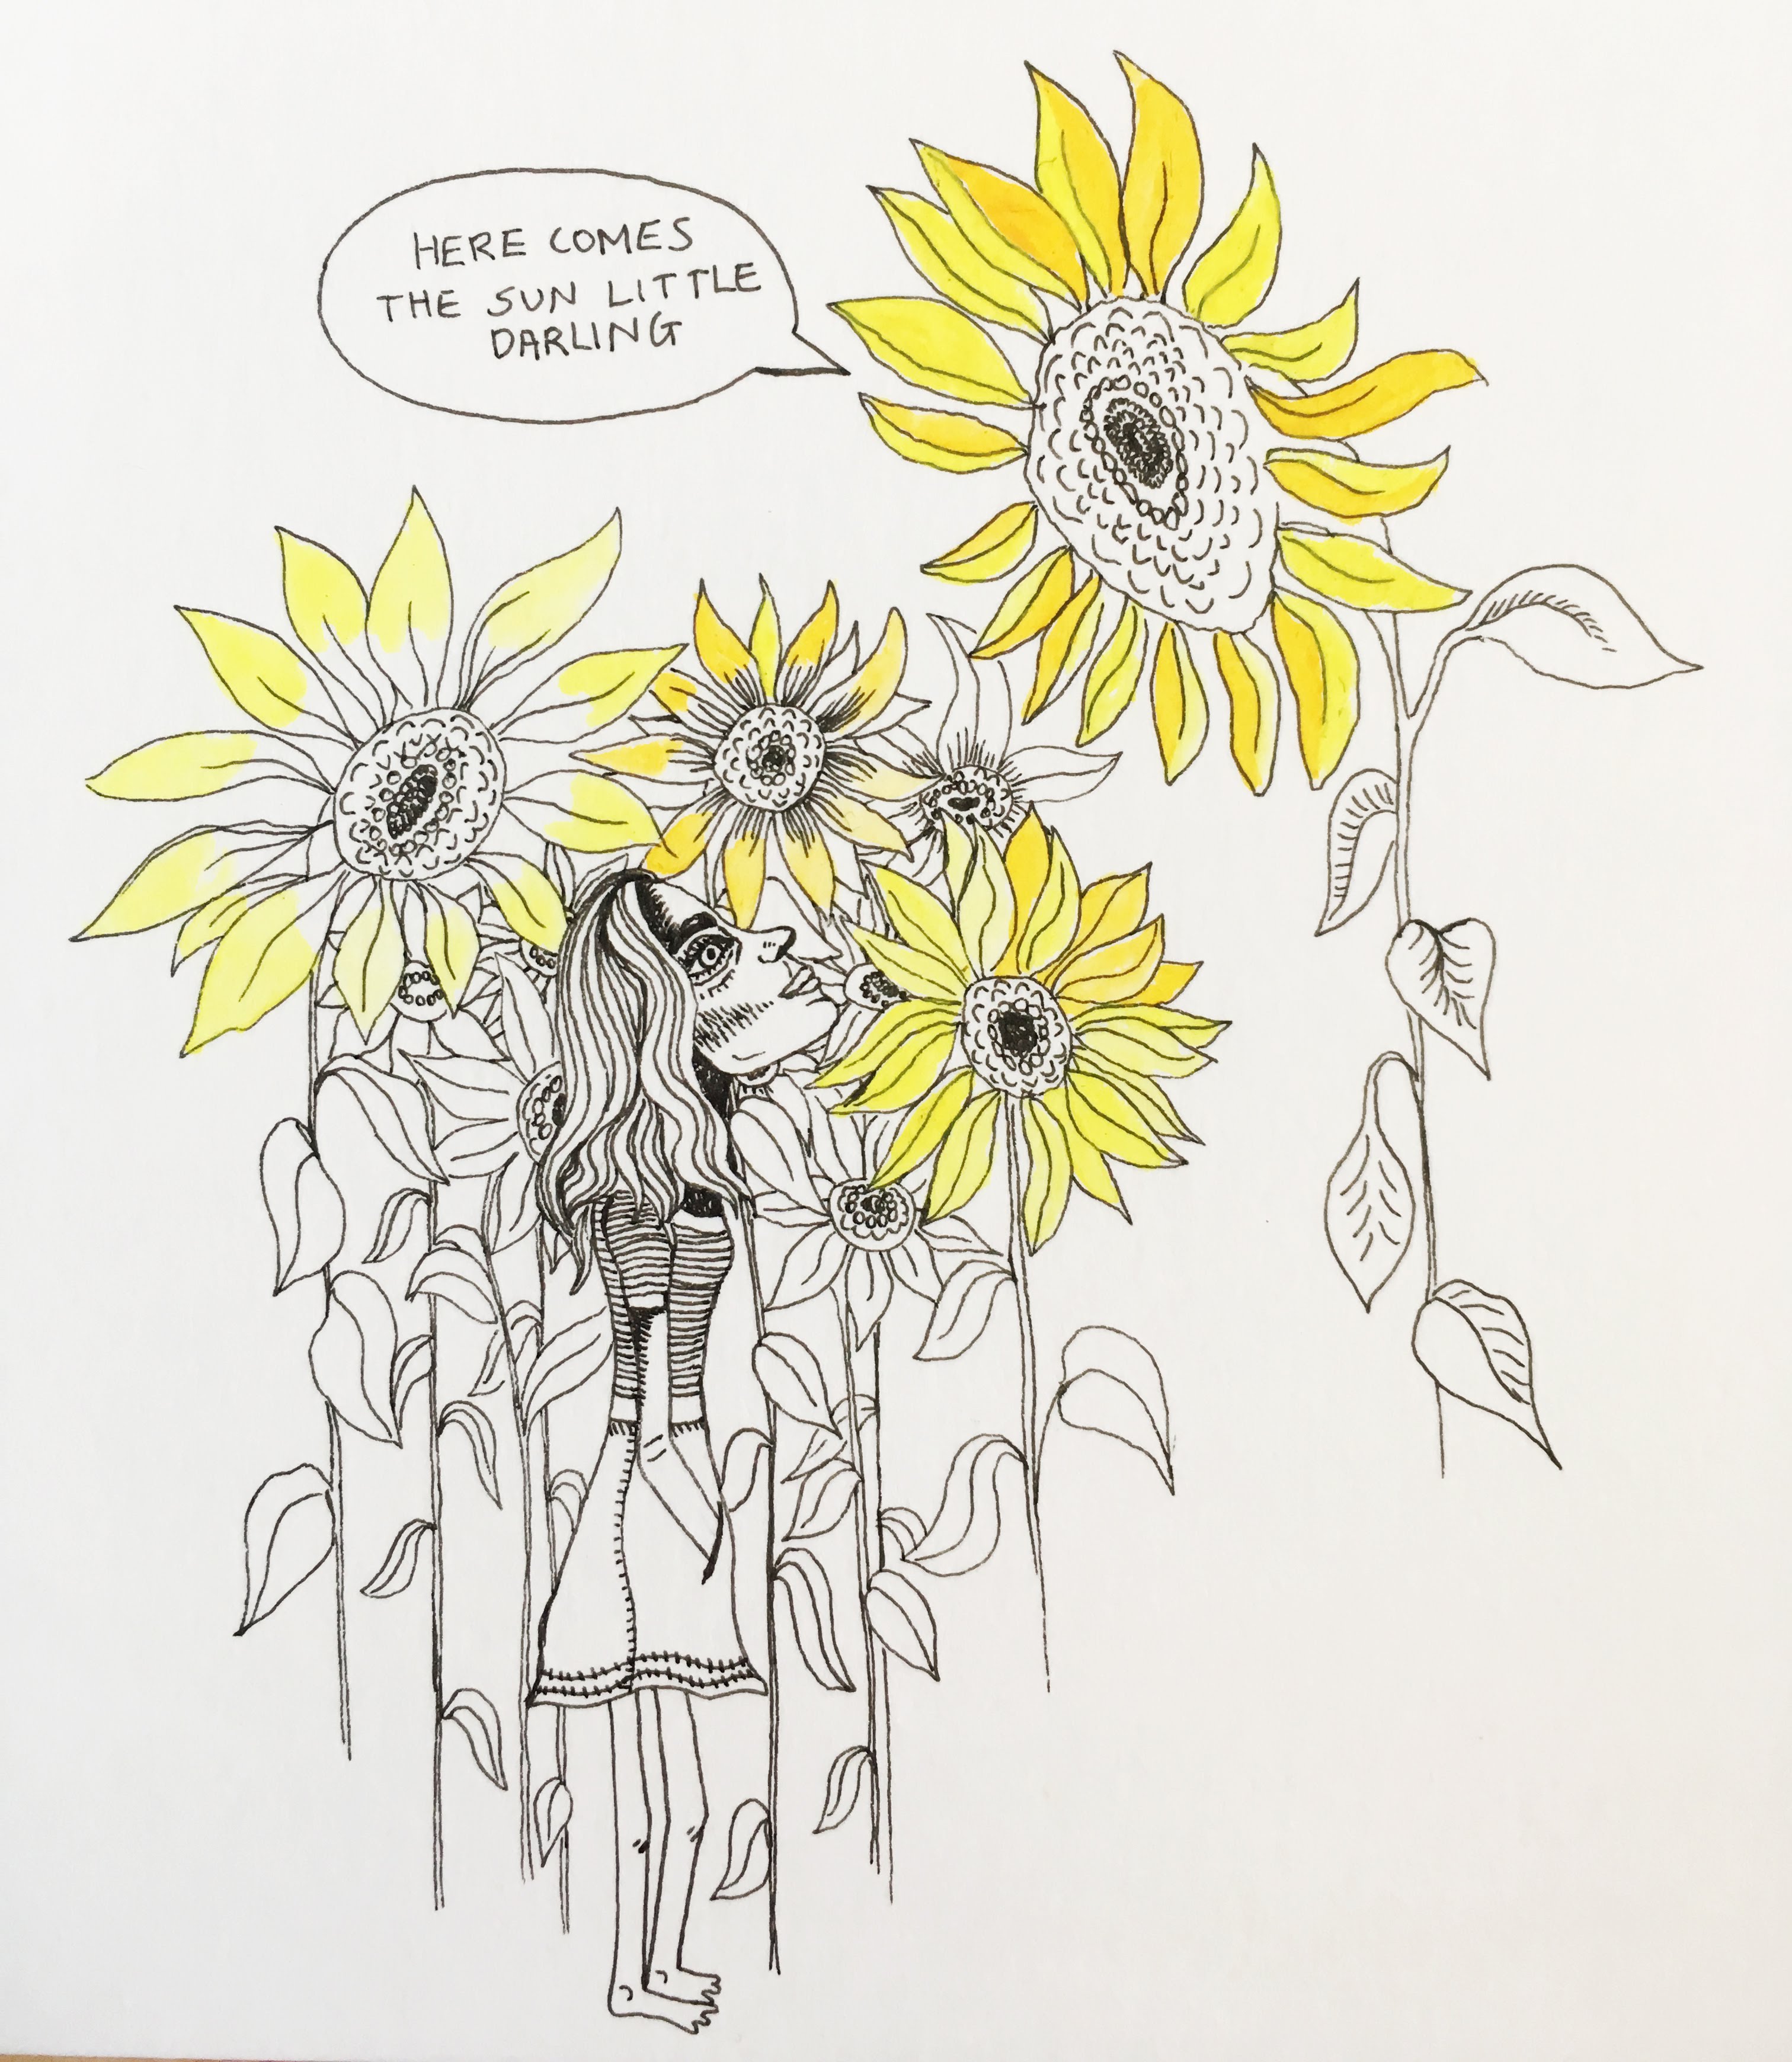 HERE COMES
THE SUN LITTLE
DARLING